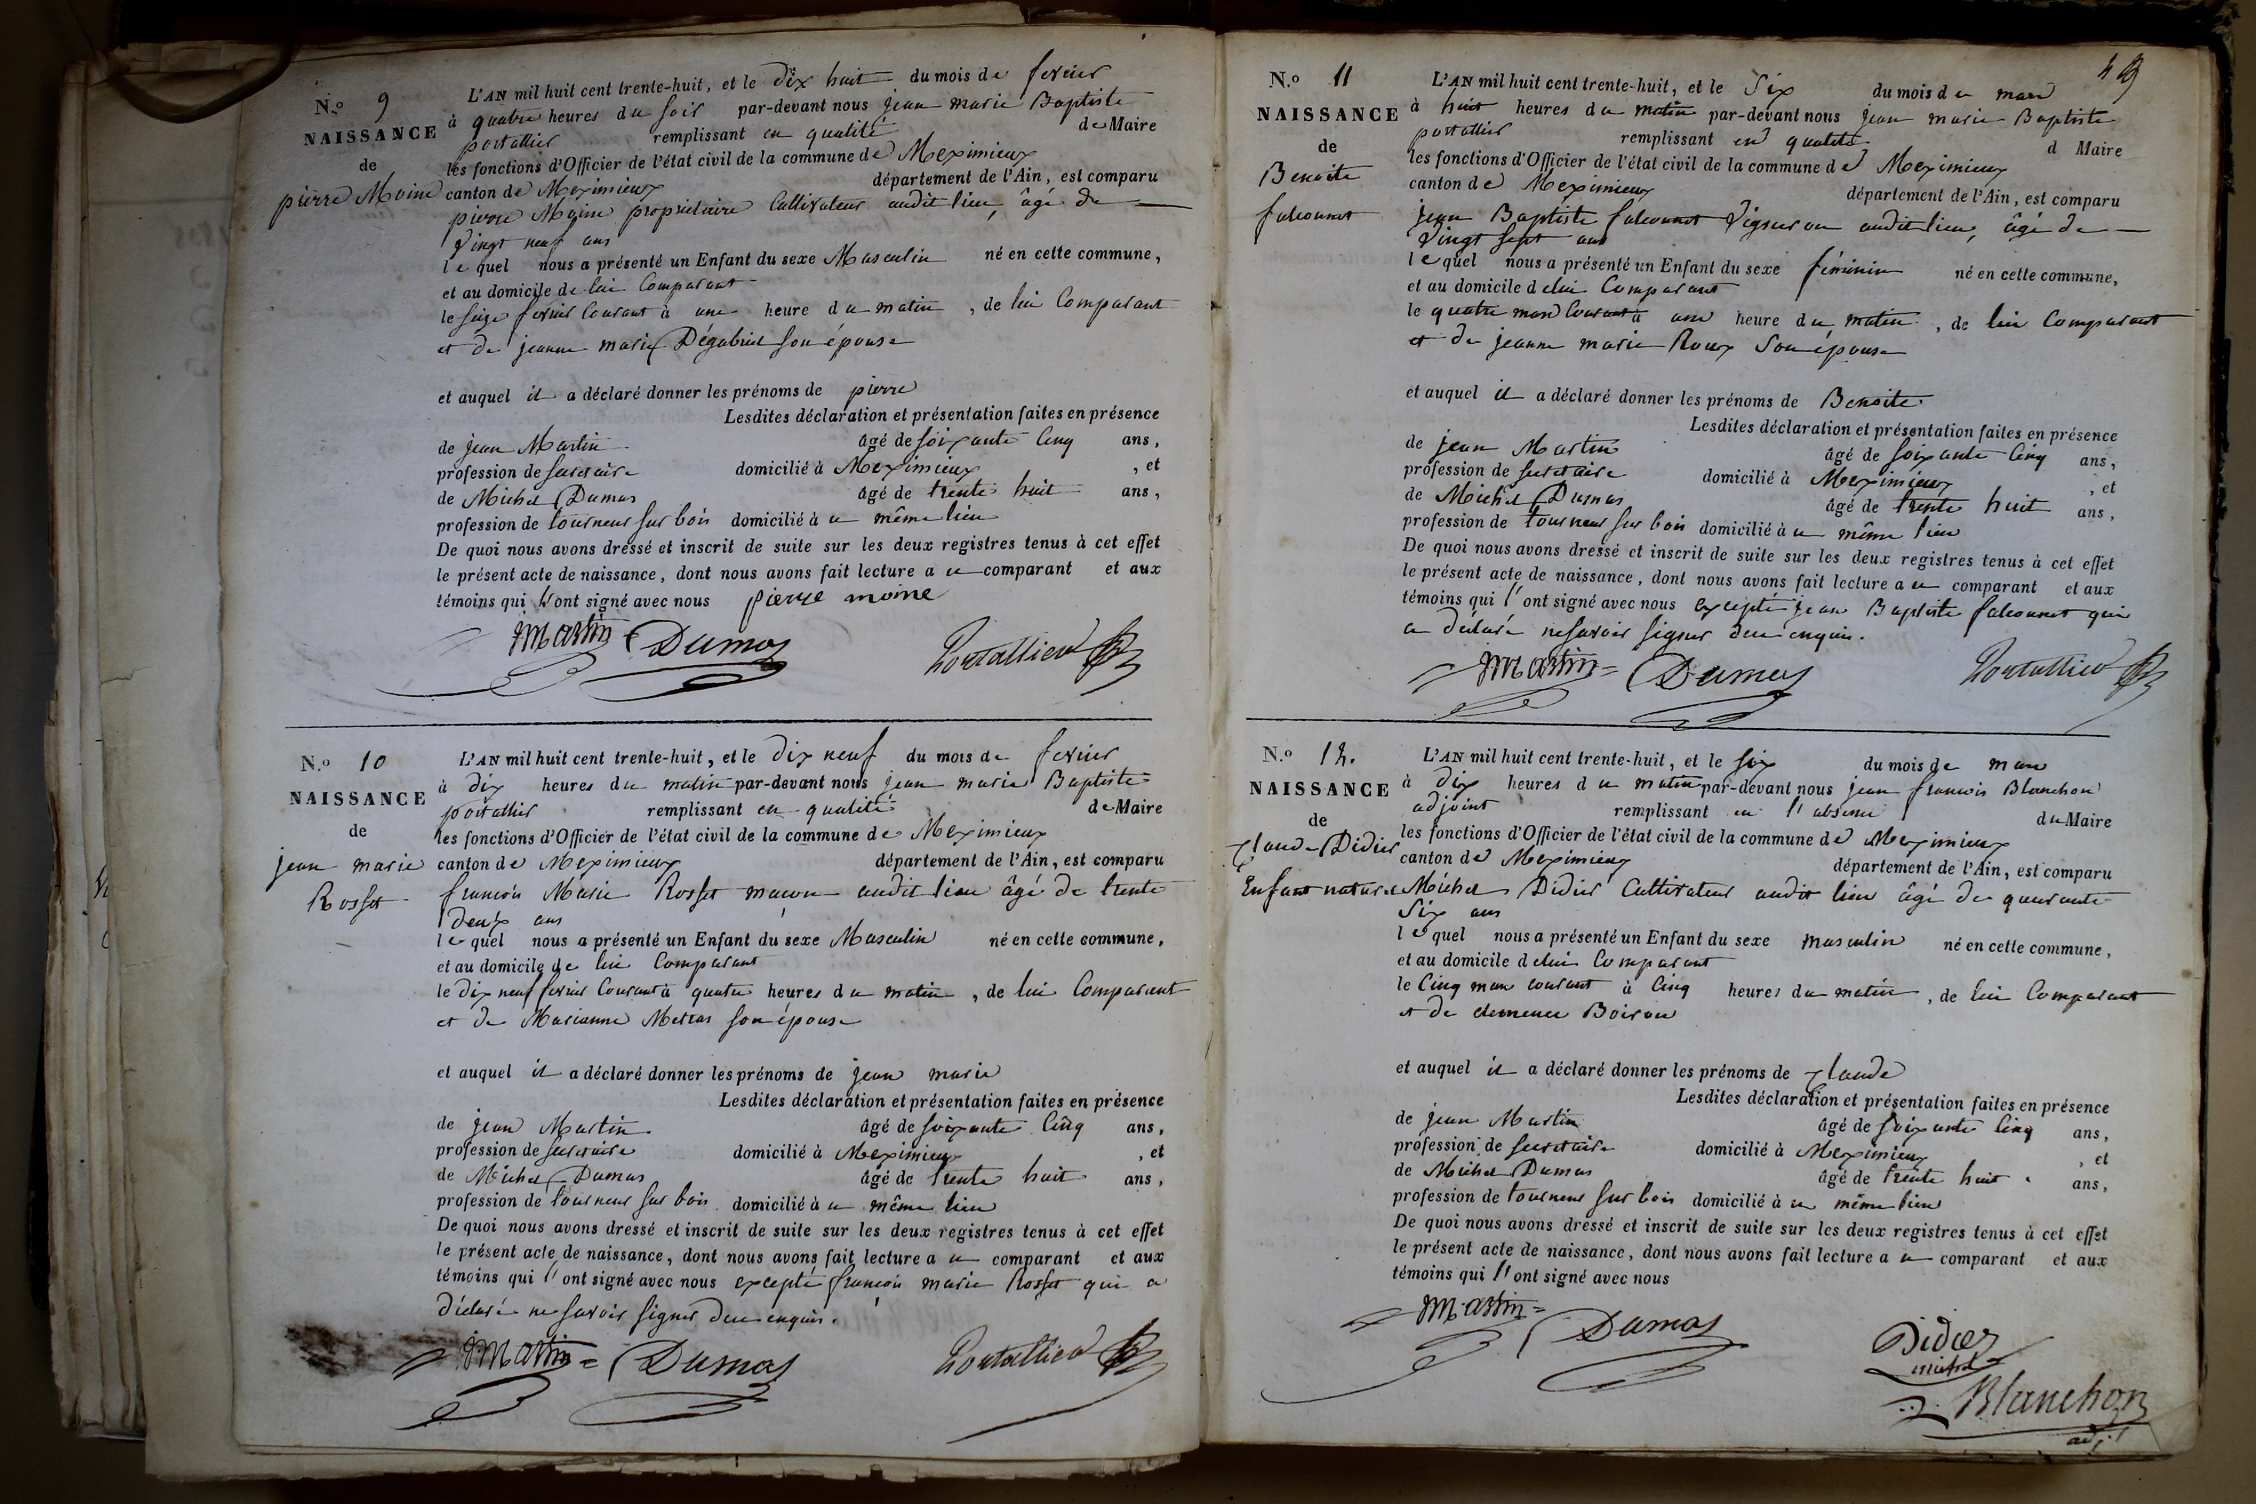 N.o 9
NAISSANCE
de
pierre Moine
L'AN mil huit cent trente-huit, et le Dix huit du mois de fevrier
à quatre heures du soir par-devant nous jean marie Baptiste
portallier remplissant en qualité de Maire
les fonctions d'Officier de l'état civil de la commune de Meximieux
canton de Meximieux département de l'Ain, est comparu
pierre Moine propriétaire Cultivateur audit lieu, âgé de
Vingt neuf ans
lequel nous a présenté un Enfant du sexe Masculin né en cette commune,
et au domicile de lui Comparant
le seize fevrier Courant à une heure du matin, de lui Comparant
et de jeanne marie Dégabriel son épouse
et auquel il a déclaré donner les prénoms de pierre
Lesdites déclaration et présentation faites en présence
de jean Martin âgé de soixante Cinq ans,
profession de secretaire domicilié à Meximieux, et
de Michel Dumas âgé de trente huit ans,
profession de tourneur sur bois domicilié à u même lieu
De quoi nous avons dressé et inscrit de suite sur les deux registres tenus à cet effet
le présent acte de naissance, dont nous avons fait lecture a u comparant et aux
témoins qui l'ont signé avec nous pierre moine
Martin Dumas Portallier
N.o 10
NAISSANCE
de
jean marie
Rosset
L'AN mil huit cent trente-huit, et le dix neuf du mois de fevrier
à dix heures du matin par-devant nous jean marie Baptiste
portallier remplissant en qualité de Maire
les fonctions d'Officier de l'état civil de la commune de Meximieux
canton de Meximieux département de l'Ain, est comparu
françois Marie Rosset maçon audit lieu âgé de trente
deux ans
lequel nous a présenté un Enfant du sexe Masculin né en cette commune,
et au domicile de lui Comparant
le dix neuf fevrier Courant à quatre heures du matin, de lui Comparant
et de Marianne son épouse
et auquel il a déclaré donner les prénoms de jean marie
Lesdites déclaration et présentation faites en présence
de jean Martin âgé de soixante Cinq ans,
profession de secretaire domicilié à Meximieux, et
de Michel Dumas âgé de trente huit ans,
profession de tourneur sur bois domicilié à u même lieu
De quoi nous avons dressé et inscrit de suite sur les deux registres tenus à cet effet
le présent acte de naissance, dont nous avons fait lecture a u comparant et aux
témoins qui l'ont signé avec nous excepté françois marie Rosset qui a
déclaré ne savoir signer de ce enquis.
Martin = Dumas Portallier
N.o 11
NAISSANCE
de
Benoite
falconnet
L'AN mil huit cent trente-huit, et le Six du mois de mars
à huit heures du matin par-devant nous jean marie Baptiste
portallier remplissant en qualité d Maire
les fonctions d'Officier de l'état civil de la commune de Meximieux
canton de Meximieux département de l'Ain, est comparu
jean Baptiste falconnet Vigneron audit lieu, âgé de
Vingt sept ans
lequel nous a présenté un Enfant du sexe féminin né en cette commune,
et au domicile de lui Comparant
le quatre mars Courant à une heure du matin, de lui Comparant
et de jeanne marie Roux Son épouse
et auquel il a déclaré donner les prénoms de Benoite.
Lesdites déclaration et présentation faites en présence
de jean Martin âgé de soixante Cinq ans,
profession de secretaire domicilié à Meximieux, et
de Michel Dumas âgé de trente huit ans,
profession de tourneur sur bois domicilié à u même lieu
De quoi nous avons dressé et inscrit de suite sur les deux registres tenus à cet effet
le présent acte de naissance, dont nous avons fait lecture a u comparant et aux
témoins qui l'ont signé avec nous excepté jean Baptiste falconnet qui
a déclaré ne savoir signer de ce enquis.
Martin = Dumas Portallier
N.o 12.
NAISSANCE
de
Claude Didier
Enfant naturel
L'AN mil huit cent trente-huit, et le six du mois de mars
à Dix heures du matin par-devant nous jean françois Blanchon
adjoint remplissant en l'absence du Maire
les fonctions d'Officier de l'état civil de la commune de Meximieux
canton de Meximieux département de l'Ain, est comparu
Michel Didier Cultivateur audit lieu âgé de quarante
Six ans
lequel nous a présenté un Enfant du sexe masculin né en cette commune,
et au domicile de lui Comparant
le Cinq mars courant à Cinq heures du matin, de lui Comparant
et de clemence Boiron
et auquel il a déclaré donner les prénoms de Claude
Lesdites déclaration et présentation faites en présence
de jean Martin âgé de soixante Cinq ans,
profession de secretaire domicilié à Meximieux, et
de Michel Dumas âgé de trente huit ans,
profession de tourneur sur bois domicilié à u même lieu
De quoi nous avons dressé et inscrit de suite sur les deux registres tenus à cet effet
le présent acte de naissance, dont nous avons fait lecture a u comparant et aux
témoins qui l'ont signé avec nous
Martin = Dumas Didier
michel
Blanchon
adj.t